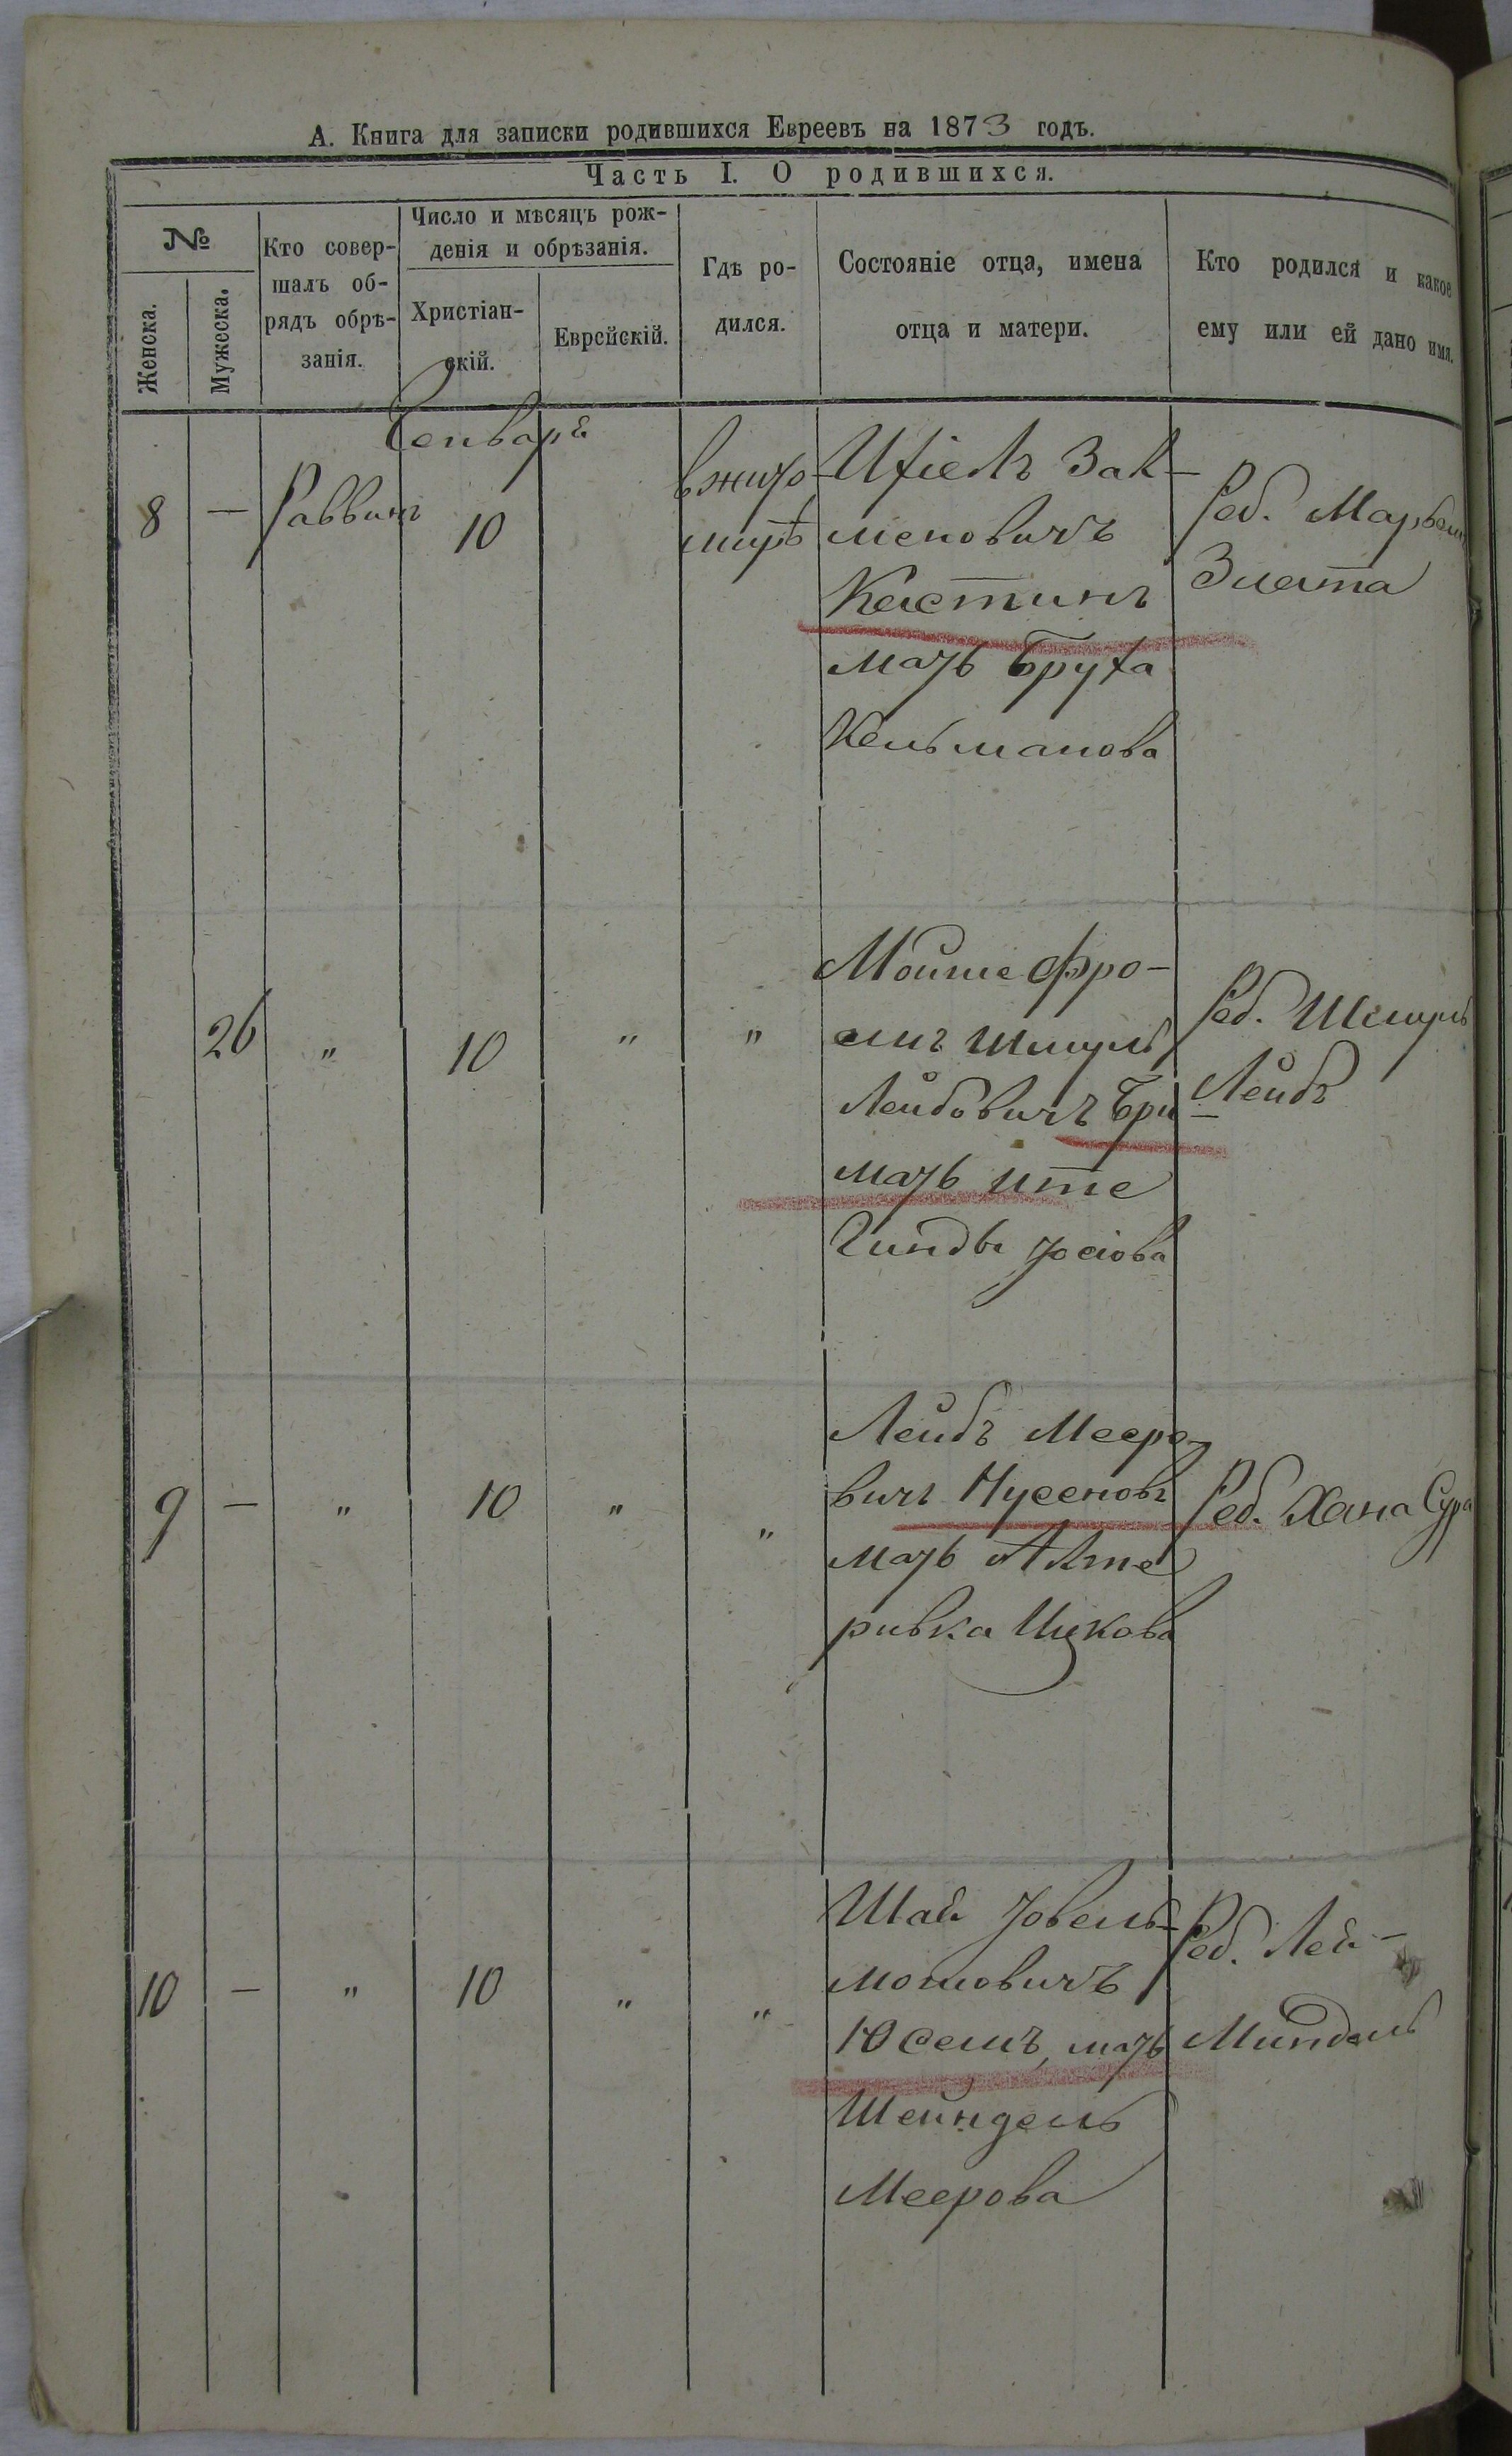 А. Книга для записки родившихся Евреевъ на 1873 годъ.
Часть I. О родившихся.
№
Женска.
Мужеска.
Кто совер-
шалъ об-
рядъ обрѣ-
занія.
Число и мѣсяцъ рож-
денія и обрѣзанія.
Христіан-
скій.
Еврейскій.
Гдѣ ро-
дился.
Состояніе отца, имена
отца и матери.
Кто родился и какое
ему или ей дано имя.
Генварь
8
—
Раввинъ
10
в жито-
мирѣ
Ихіелъ Зал-
меновичъ
Костинъ
мать Бруха
Кельманова
Реб.
Злота
26
"
10
"
"
Мойше Фро-
имъ Шмуль
Лейбовичъ
мать ите
Гинды
Реб. Шмуль
Лейбъ
9
—
"
10
"
"
Лейбъ Мееро-
вичъ Нусеновъ
мать Алте
ривка Ицкова
Реб. Хана Сура
10
—
"
10
"
"
Шай Іовель-
мотовичъ
Юсемъ, мать
Шейндель
Меерова
Реб. Лея-
Миндель